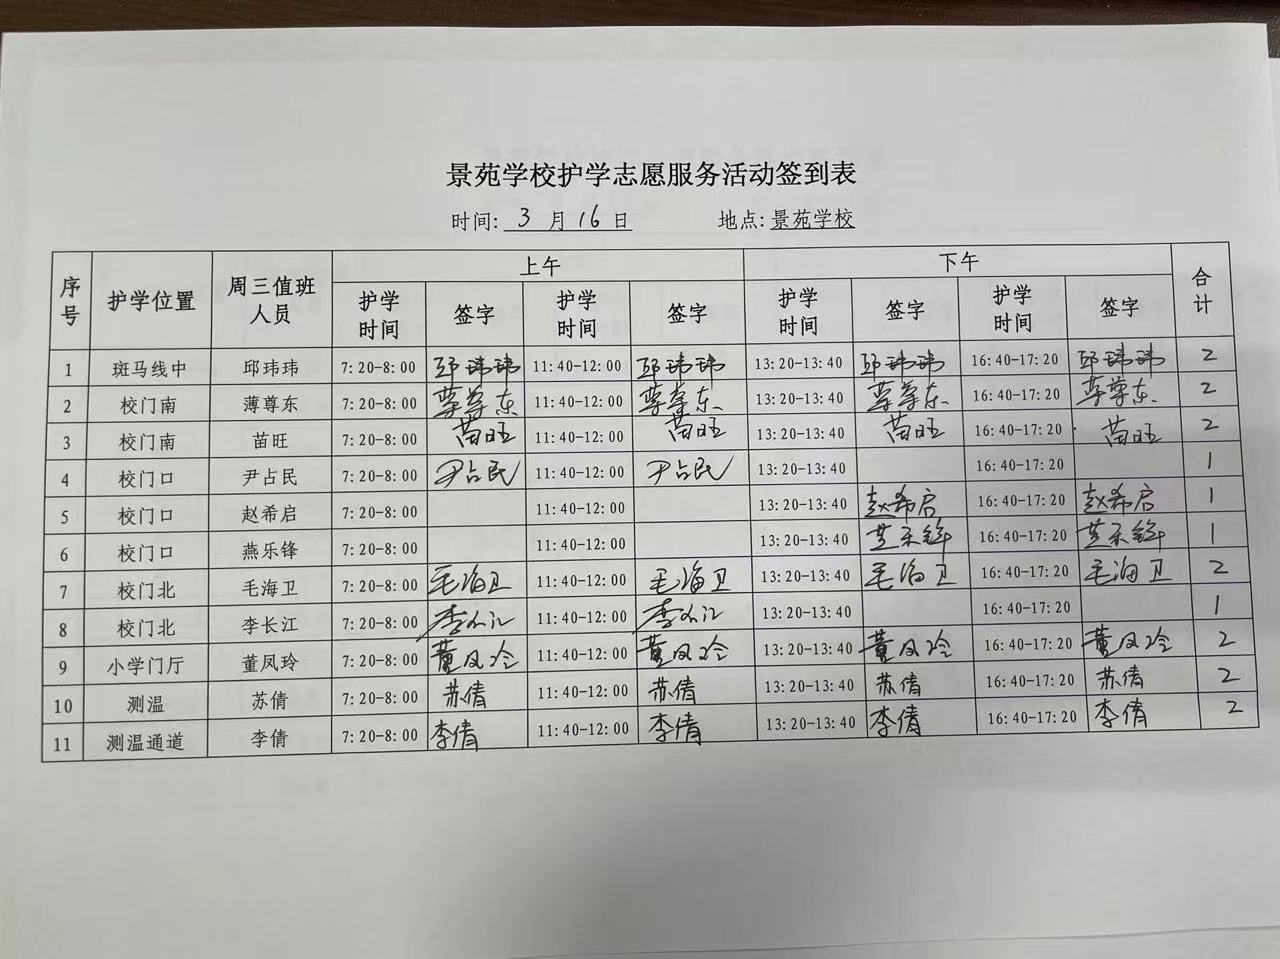 景苑学校护学志愿服务活动签到表
时间: 3 月 16 日 地点: 景苑学校
序号 护学位置 周三值班人员 上午 下午 合计
护学时间 签字 护学时间 签字 护学时间 签字 护学时间 签字
1 斑马线中 邱玮玮 7:20-8:00 邱玮玮 11:40-12:00 邱玮玮 13:20-13:40 邱玮玮 16:40-17:20 邱玮玮 2
2 校门南 薄尊东 7:20-8:00 尊东 11:40-12:00 尊东 13:20-13:40 尊东 16:40-17:20 尊东 2
3 校门南 苗旺 7:20-8:00 苗旺 11:40-12:00 苗旺 13:20-13:40 苗旺 16:40-17:20 苗旺 2
4 校门口 尹占民 7:20-8:00 尹占民 11:40-12:00 尹占民 13:20-13:40 16:40-17:20 1
5 校门口 赵希启 7:20-8:00 11:40-12:00 13:20-13:40 赵希启 16:40-17:20 赵希启 1
6 校门口 燕乐锋 7:20-8:00 11:40-12:00 13:20-13:40 乐锋 16:40-17:20 乐锋 1
7 校门北 毛海卫 7:20-8:00 毛海卫 11:40-12:00 毛海卫 13:20-13:40 毛海卫 16:40-17:20 毛海卫 2
8 校门北 李长江 7:20-8:00 李长江 11:40-12:00 李长江 13:20-13:40 16:40-17:20 1
9 小学门厅 董凤玲 7:20-8:00 董凤玲 11:40-12:00 董凤玲 13:20-13:40 董凤玲 16:40-17:20 董凤玲 2
10 测温 苏倩 7:20-8:00 苏倩 11:40-12:00 苏倩 13:20-13:40 苏倩 16:40-17:20 苏倩 2
11 测温通道 李倩 7:20-8:00 李倩 11:40-12:00 李倩 13:20-13:40 李倩 16:40-17:20 李倩 2